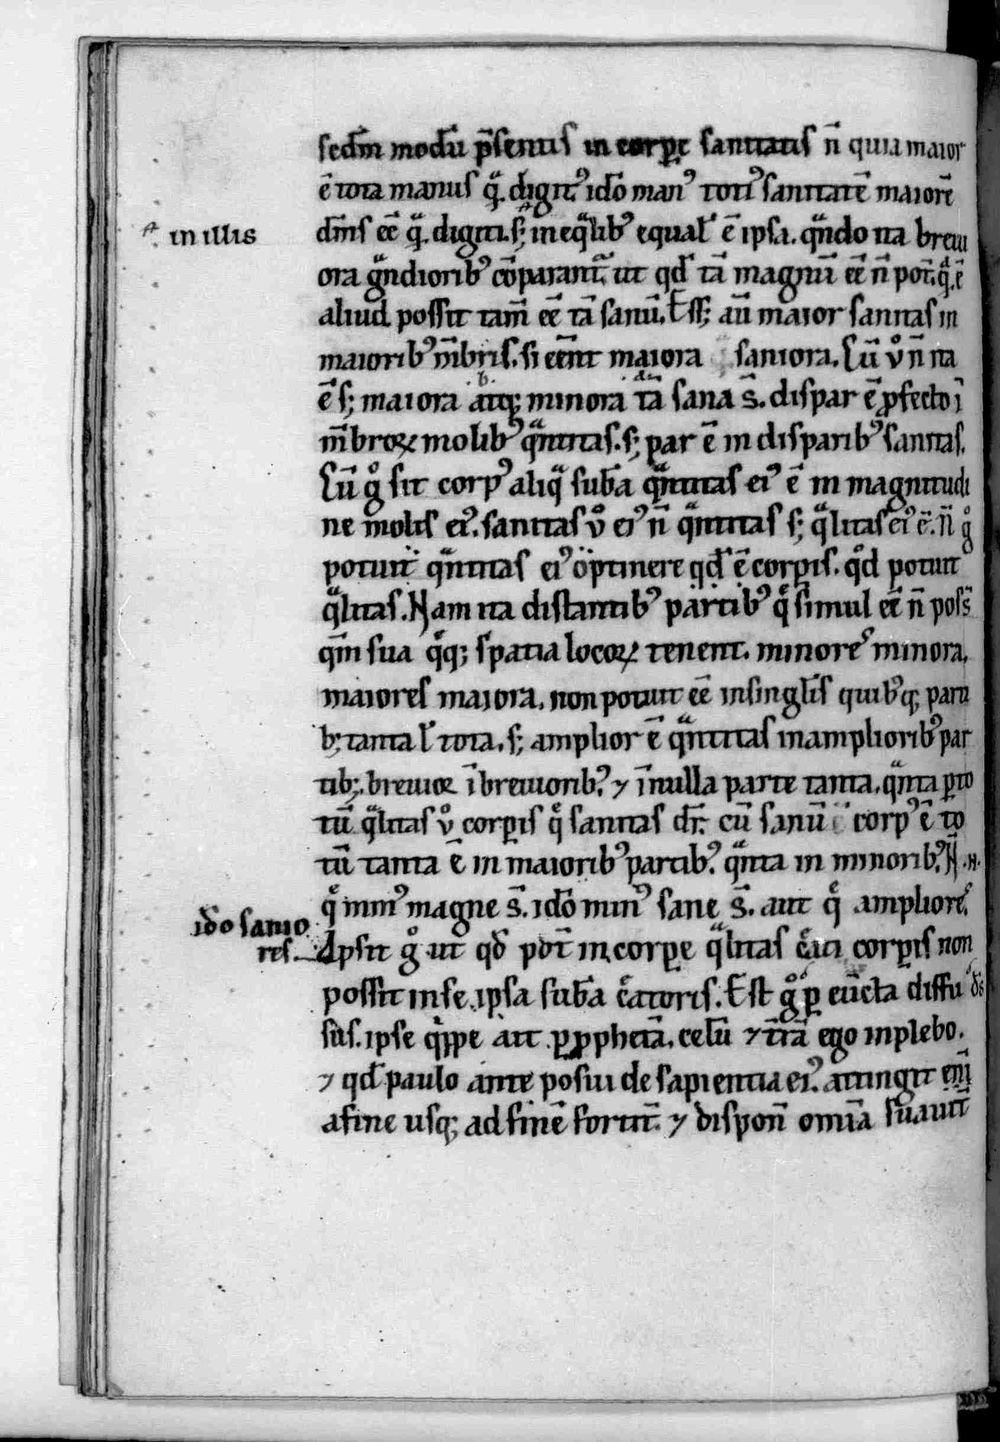 secdm modū p̄sentis in corpe sanitatis n̄ quia maior
ē tota manus q̄. digitꝰ idō manꝰ totiꝰ sanitatē maiorē
in illis
dm̄s eē q̄. digiti. s; ineq̄libꝰ equal' ē ipsa. qn̄do ita breui
ora gn̄dioribꝰ cōparant᷑ ut qd̄ tā magnū eē n̄ pot᷑. q̄. ē
aliud possit tam̄ eē tā sanū. Eēt; aū maior sanitas in
maioribꝰ m̄bris. si eēnt maiora saniora. Cū ꝟ n̄ ita
ē s; maiora atq; minora tā sana s̄. dispar ē ꝓfecto ī
m̄broꝝ molibꝰ qn̄titas. s; par ē in disparibꝰ sanitas.
Cū gͦ sit corpꝰ aliq̄ suba qn̄titas eiꝰ ē in magnitudi
ne molis eiꝰ. sanitas ꝟ eiꝰ n̄ qn̄titas s; q̄litas eiꝰ ē. n̄ gͦ
potuit qn̄titas eiꝰ optinere qd̄ ē corpis. qͦd potuit
q̄litas. Nam ita distantibꝰ partibꝰ q̄ simul eē n̄ poss̄
qm̄ sua q̄q; spatia locoꝝ tenent. minoreꝰ minora.
maiores maiora. non potuit eē insinglis̄ quibꝰq; parti
b; tanta l' tota. s; amplior ē qn̄titas inamplioribꝰ par
tib;. breuior ī breuioribꝰ. ⁊ ī nulla parte tanta. qn̄ta p to
tū q̄litas ꝟ corpis q̄ sanitas dr̄. cū sanū corpꝰ ē to
tū tanta ē in maioribꝰ partibꝰ. qn̄ta in minoribꝰ. N̄ .n.
q̄ minꝰ magne s̄. idō minꝰ sane s̄. aut q̄ ampliores.
idō sanio
res.
Apsit gͦ ut qd̄ pōt in corpe q̄litas c̄ati corpis non
possit inse ipsa suba c̄atoris. Est gͦ ꝑ cūcta diffu ds̄
sus. ipse q̄ppe ait ꝑ ꝓphetā. celū ⁊ t̄rā ego inplebo.
⁊ qd̄ paulo ante posui de sapientia eiꝰ. attingit eni
afine usq; ad finē fortit᷑. ⁊ dispon̄ omīa suauit᷑